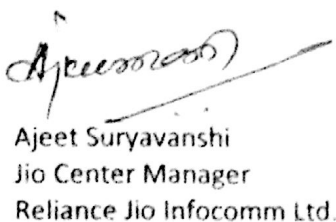 Ajeet Suryavanshi
Jio Center Manager
Reliance Jio Infocomm Ltd